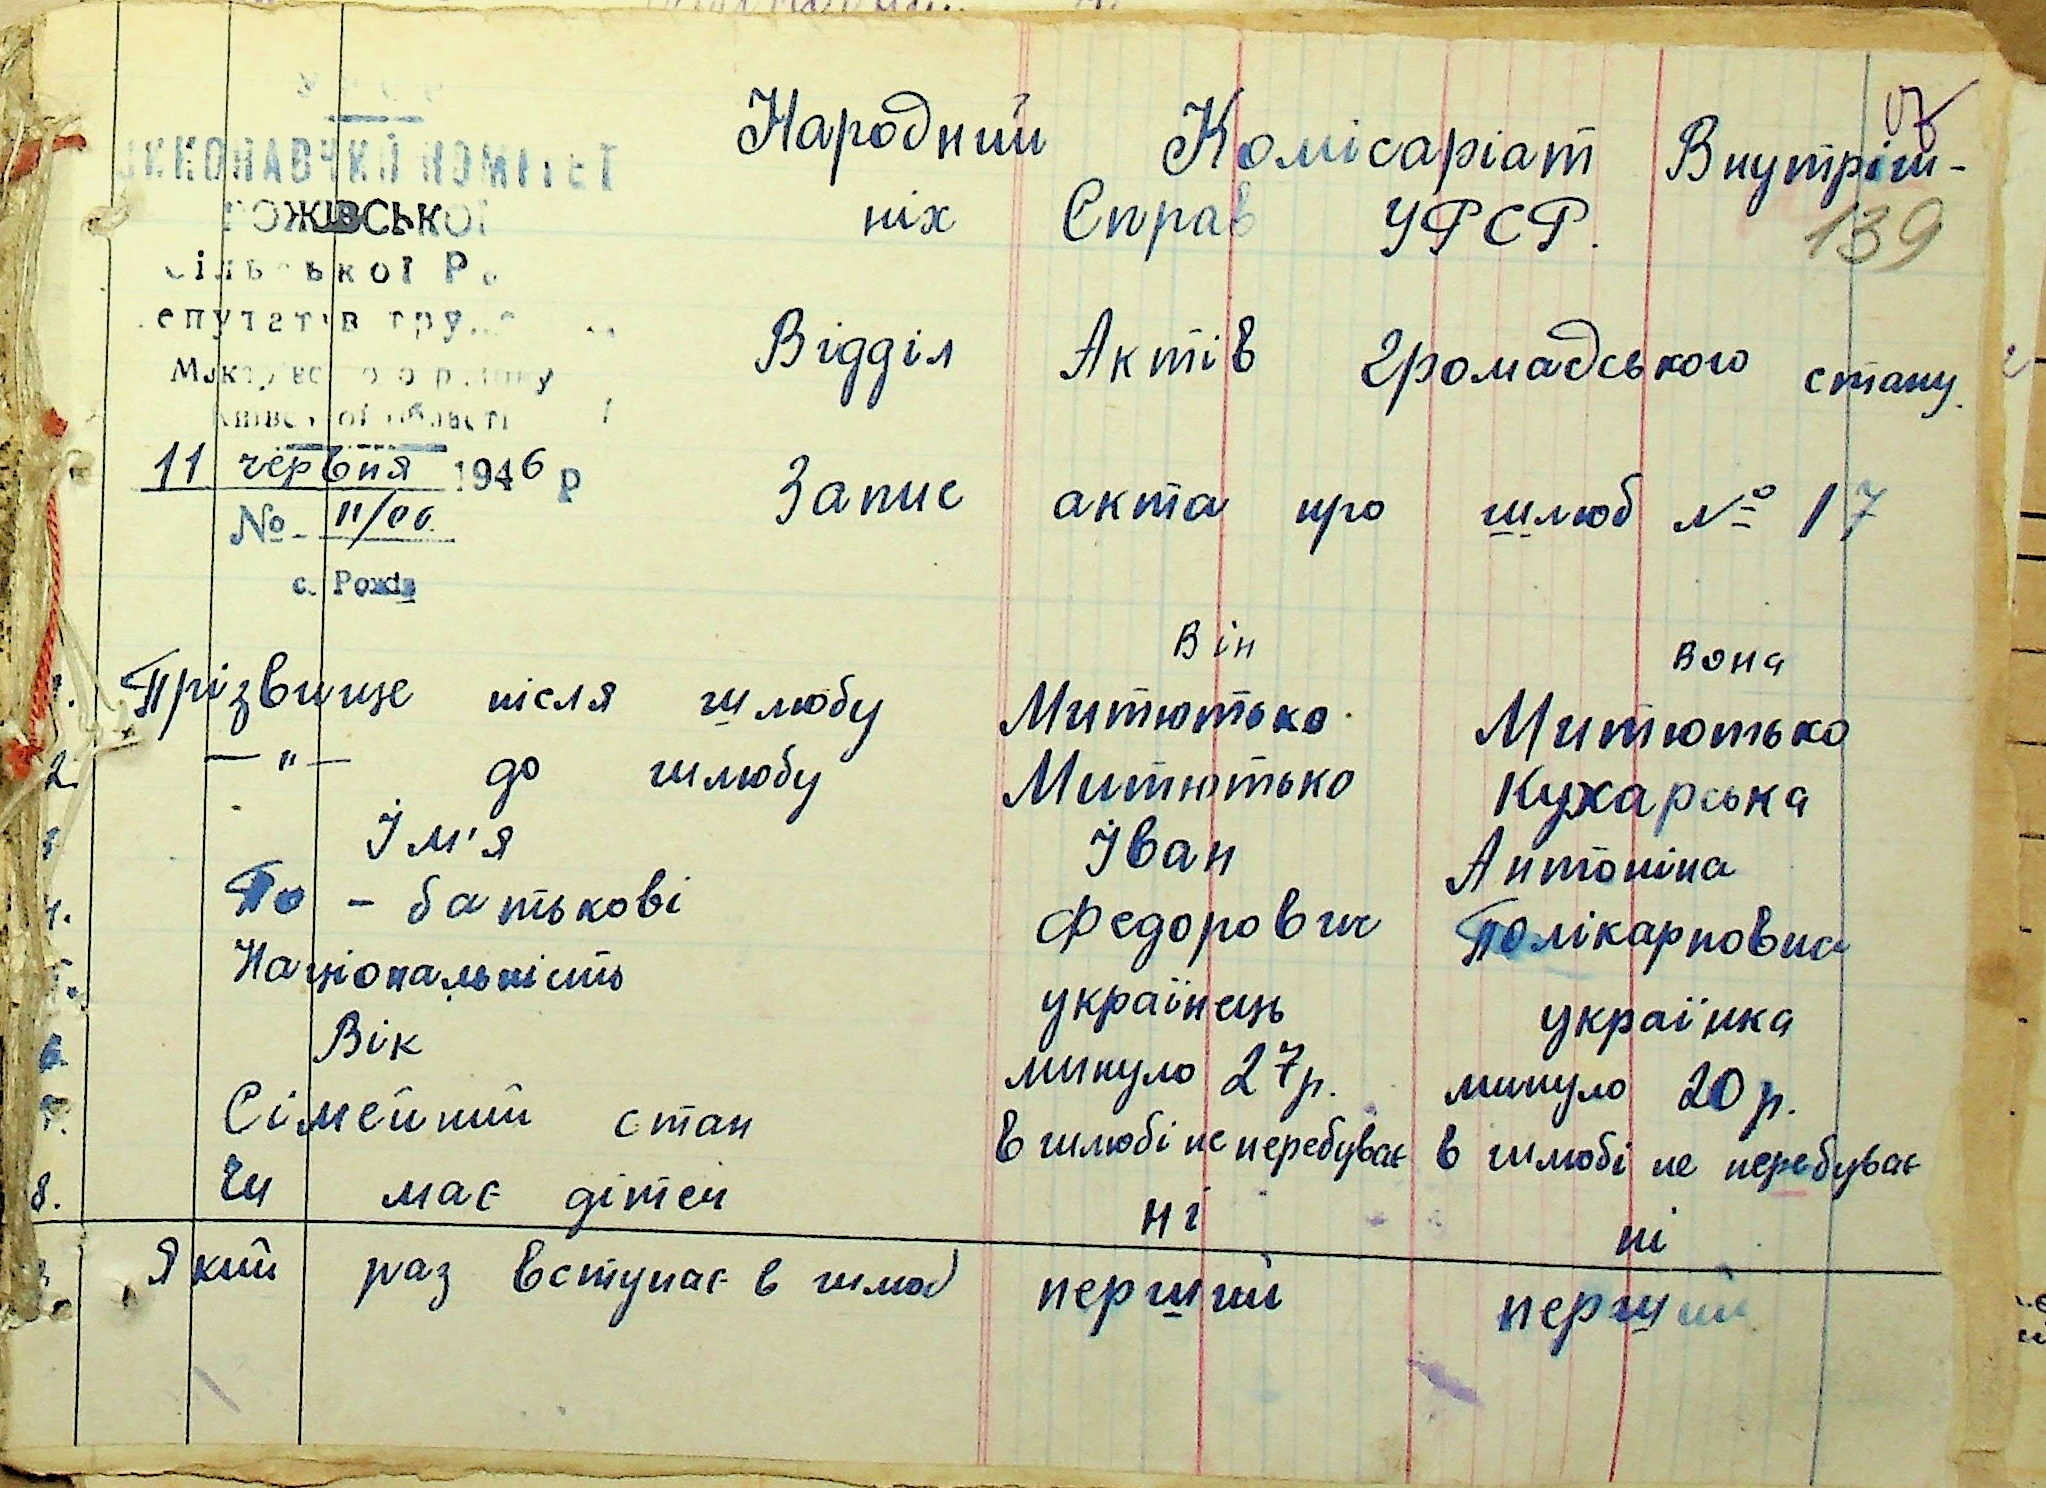 139
Народний Комісаріат Внутріш-
ніх Справ УРСР.
Відділ Актів Громадського стану.
РОЖІВСЬКОЇ
11 червня 1946 р
№
с. Рожів
Запис акта про шлюб № 17
Він Вона
1. Прізвище після шлюбу Митютько Митютько
2. — " — до шлюбу Митютько Кухарська
Ім'я Іван Антоніна
4. По - батькові Федорович Полікарповна
Національність українець українка
6. Вік минуло 27 р. минуло 20 р.
7. Сімейний стан в шлюбі не перебуває в шлюбі не перебуває
8. Чи має дітей ні ні
Який раз вступає в шлюб перший перший